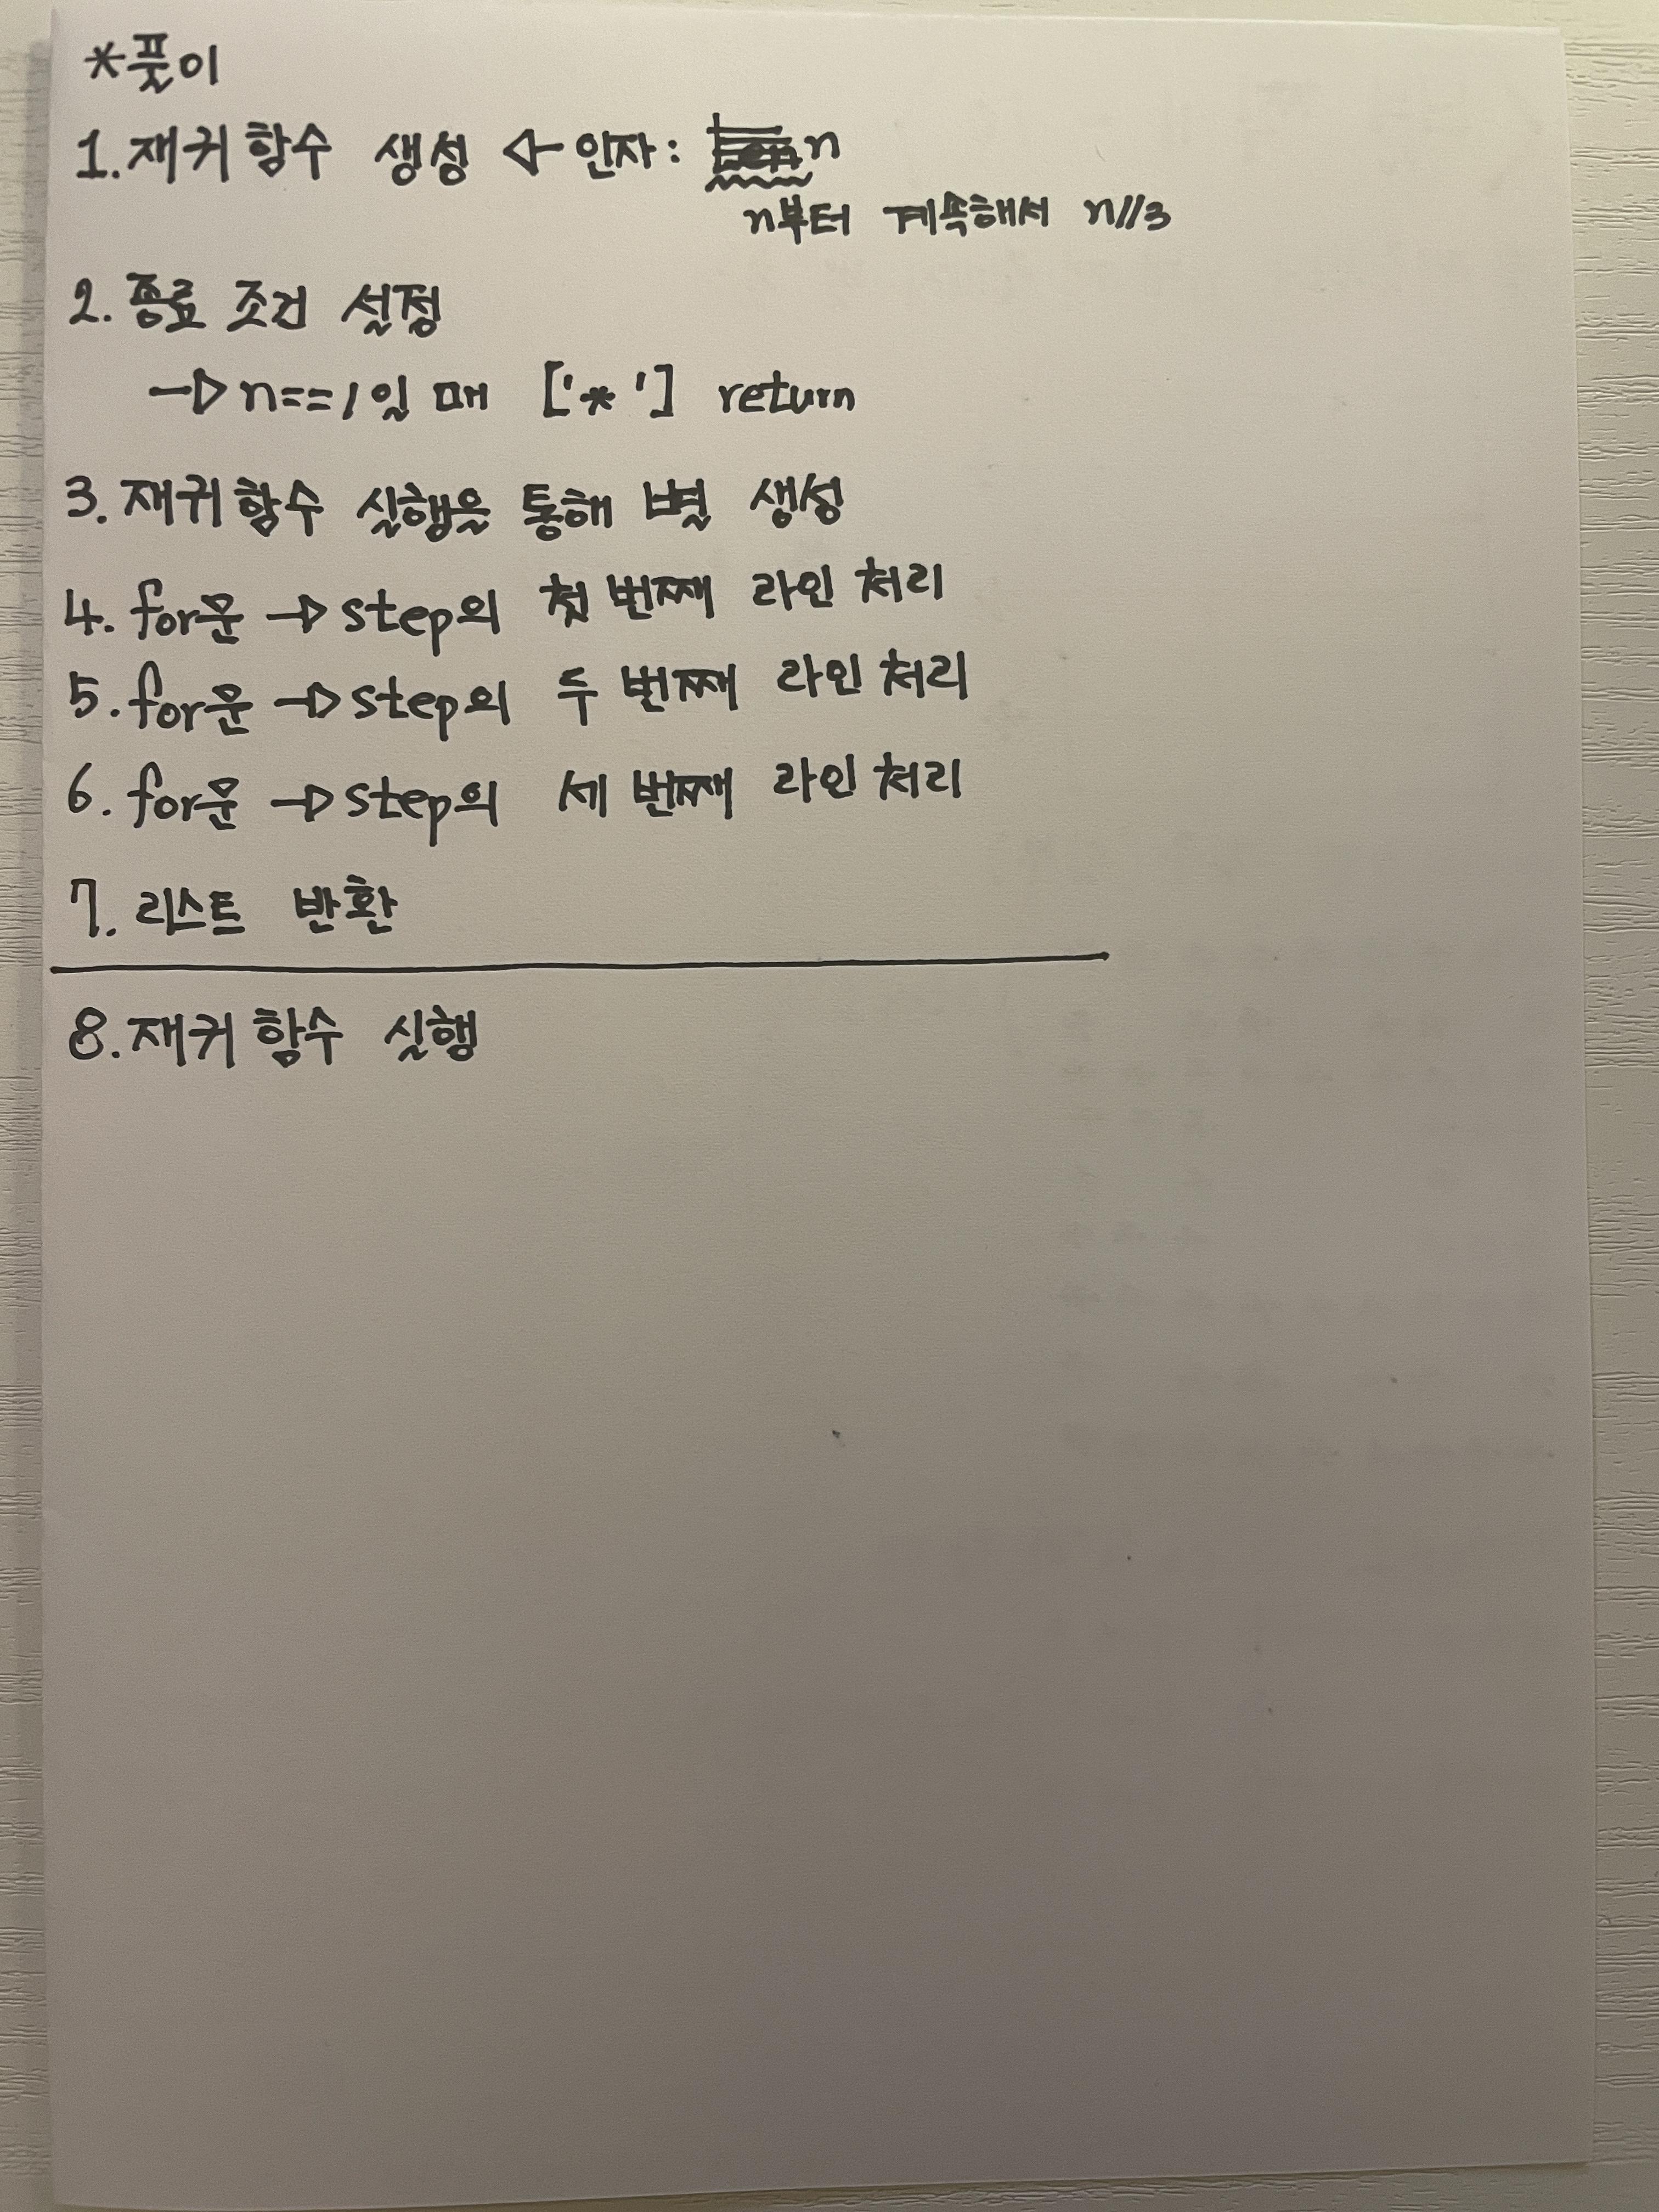 *풀이
1. 재귀 함수 생성 ← 인자: n
n부터 계속해서 n//3
2. 종료 조건 설정
→ n==1일 때 ['*'] return
3. 재귀 함수 실행을 통해 별 생성
4. for문 → step의 첫 번째 라인 처리
5. for문 → step의 두 번째 라인 처리
6. for문 → step의 세 번째 라인 처리
7. 리스트 반환
8. 재귀 함수 실행